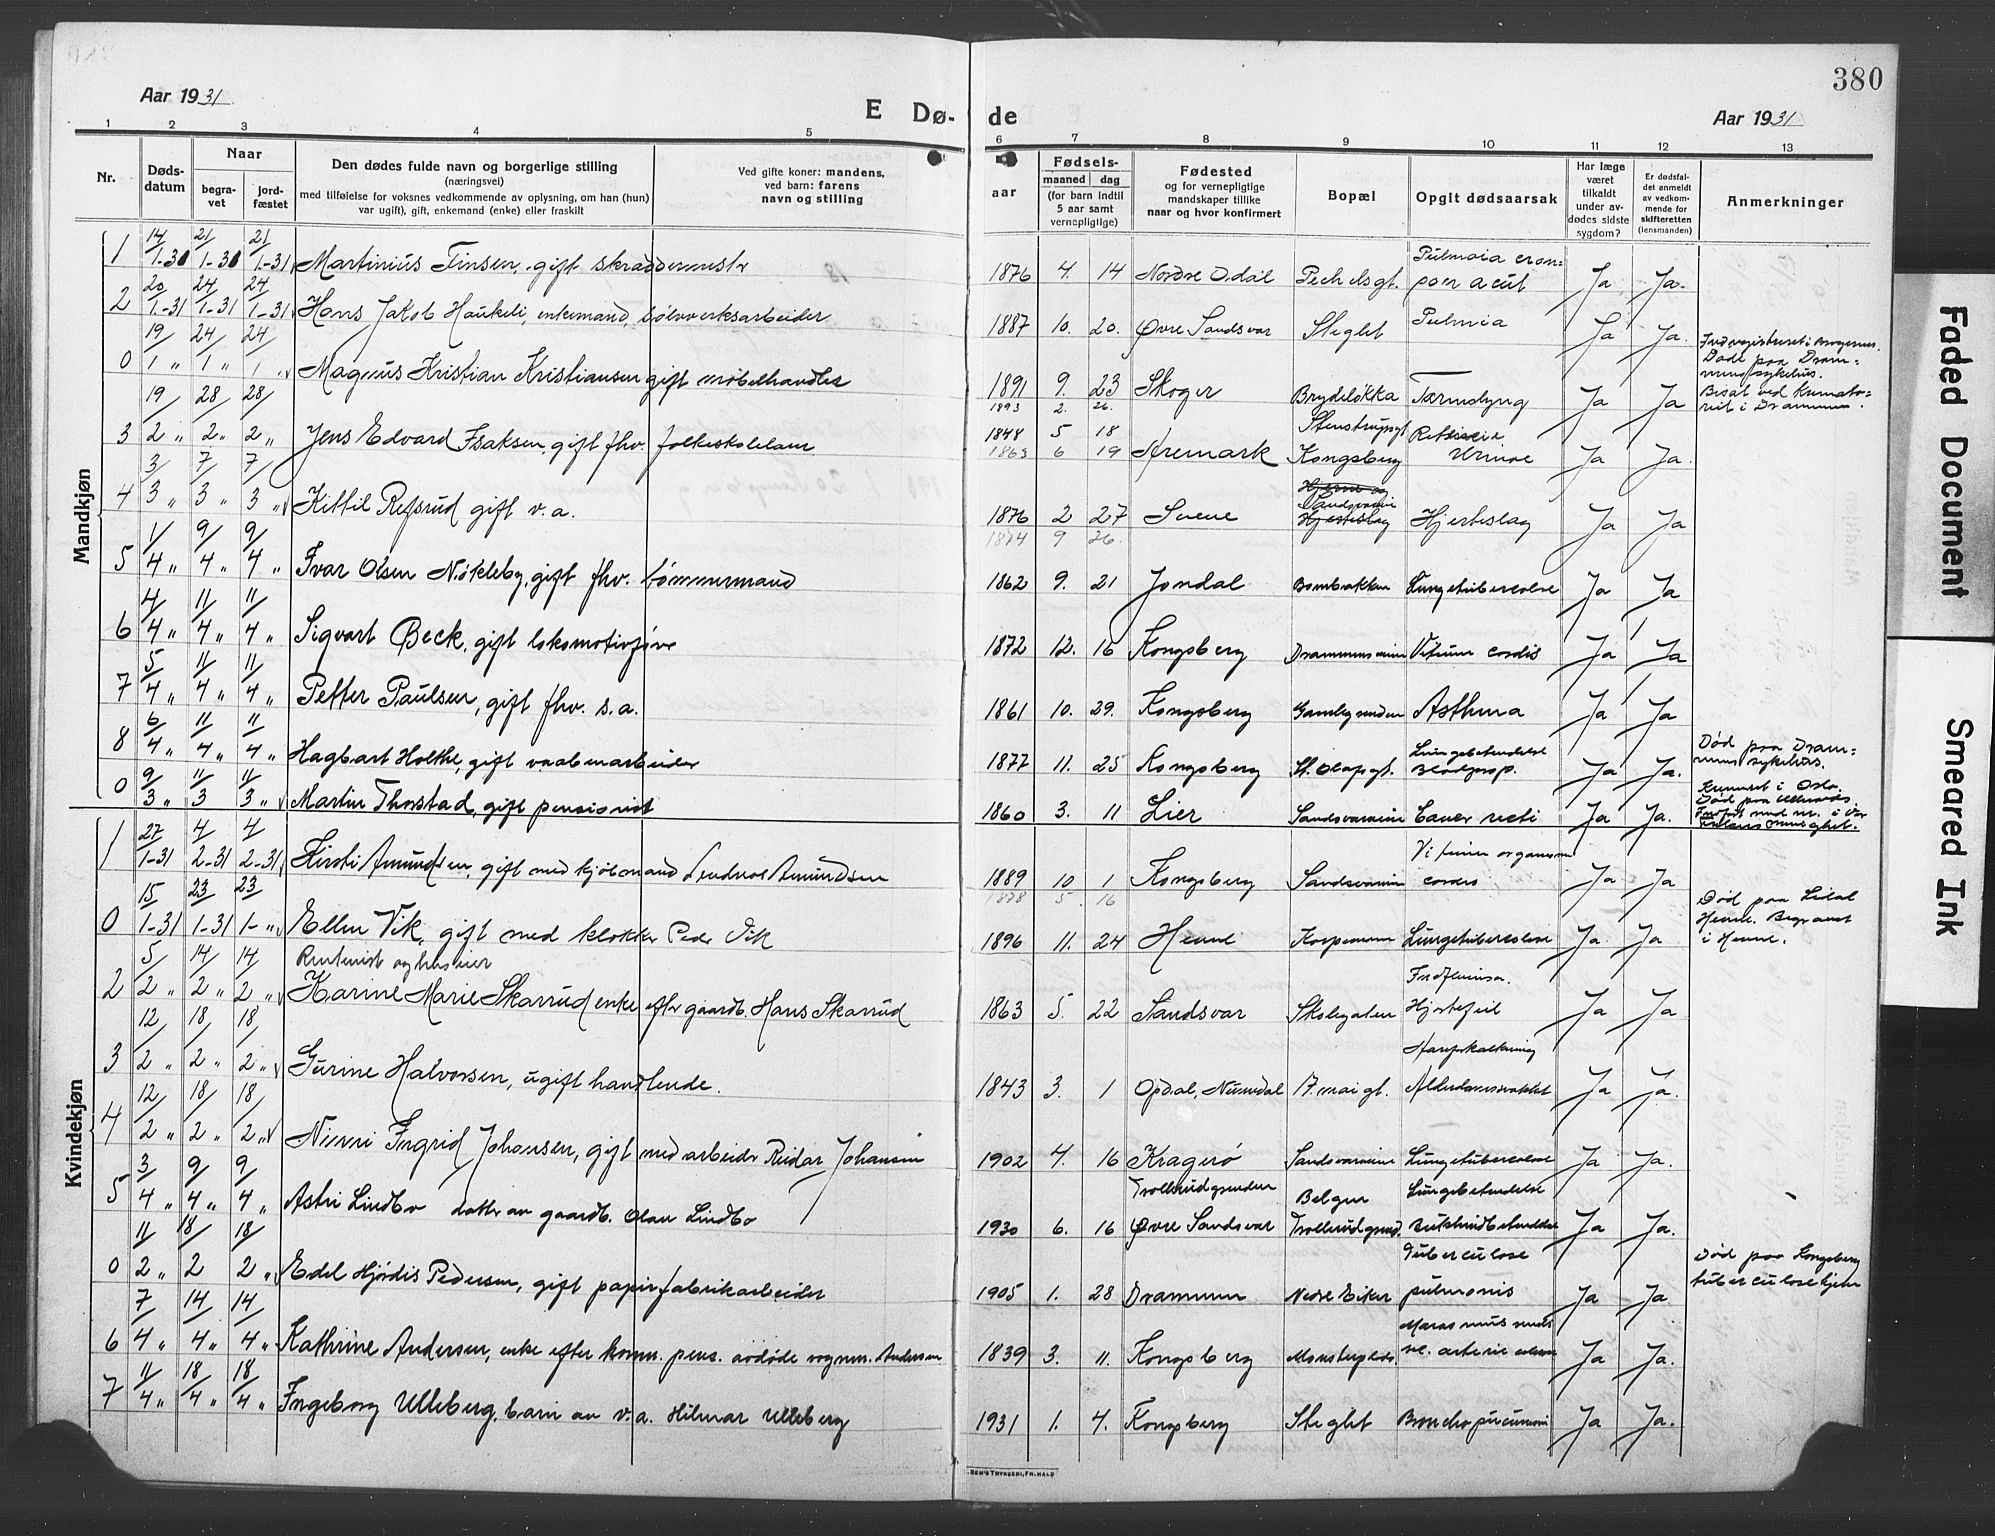 380
Aar 1931
E Dø-
de
Aar 1931
1 2 3 4 5 6 7 8 9 10 11 12 13
Nr.
Døds-
datum
Naar
begra-
vet
jord-
fæstet
Den dødes fulde navn og borgerlige stilling
(næringsvei)
med tilføielse for voksnes vedkommende av oplysning, om han (hun)
var ugift), gift, enkemand (enke) eller fraskilt
Ved gifte koner: mandens,
ved barn: farens
navn og stilling
aar
Fødsels-
maaned dag
(for barn indtil
5 aar samt
vernepligtige)
Fødested
og for vernepligtige
mandskaper tillike
naar og hvor konfirmert
Bopæl
Opgit dødsaarsak
Har læge
været
tilkaldt
under av-
dødes sidste
sygdom?
Er dødsfal-
det anmeldt
av vedkom-
mende for
skifteretten
(lensmanden)
Anmerkninger
Mandkjøn
1 14/1-31 21/1-31 21/1-31 Martinius Finsen, gift skræddermestr 1876 4. 14 Nordre Odal Pechelsgt. Ja Ja.
2 20/1-31 24/1-31 24/1-31 Hans Jakob Haukeli, enkemand, sølvverksarbeider 1887 10. 20. Øvre Sandsvær Steglet Ja Ja.
0 19/1 " 24/1 " 24/1 " Magnus Kristian Kristiansen gift møbelhandler 1891 9. 23 Skoger Brydeløkka Tarmslyng Ja Ja
Døde paa Dram-
mens sykehus.
1893 2. 26.
3 19/2 " 28/2 " 28/2 " Jens Edvard Isaksen, gift fhv. folkeskolelærer 1848 5 18 Aremark Kongsberg Urinae Ja Ja.
1863 6 19
4 3/3 " 7/3 " 7/3 " Kittil Refsrud gift v.a. 1876 2 27 Svene Hjerteslag Ja Ja
1874 9 26.
5 1/4 " 9/4 " 9/4 " Ivar Olsen Nøkleby, gift fhv. tømmermand 1862 9. 21 Jondal Lungetuberculose Ja Ja
6 4/4 " 11/4 " 11/4 " Sigvart Beck, gift lokomotivfører 1872 12. 16 Kongsberg Drammensveien Vitium cordis Ja Ja
7 5/4 " 11/4 " 11/4 " Petter Paulsen, gift fhv. s.a. 1861 10. 29. Kongsberg Gamlegrunden Asthma Ja Ja
8 6/4 " 11/4 " 11/4 " Hagbart Holthe, gift vaabenarbeider 1877 11. 25 Kongsberg St. Olafsgt. Lungebetendelse Ja Ja.
Død paa Dram-
mens sykehus.
0 9/3 " 11/3 11/3 " Martin Thorstad, gift pensionist 1860 3. 11 Lier Sandsværveien Cancer recti Ja Ja.
Kremert i Oslo.
Kvindekjøn
1 27/1-31 4/2-31 4/2-31 Kirsti Amundsen, gift med kjøbmand Amundsen 1889 10 1 Kongsberg Sandsværveien cordis Ja Ja
1878 5. 16
0 15/1-31 23/1-31 23/1-" Ellen Vik, gift med klokker Peder Vik 1896 11. 24 Lungetuberculose Ja Ja
2 5/2 " 14/2 " 14/2 " Karine Marie Skarrud enke efter gaardb. Hans Skarrud 1863 5. 22 Sandsvær Skolegaten Influensa. Hjertefeil Ja Ja
3 12/2 " 18/2 " 18/2 " Gurine Halvorsen, ugift handlende. 1843 3. 1 Opdal, Numedal 17. mai gt. Aareforkalkning Alderdomssvakhet Ja Ja.
4 12/2 " 18/2 " 18/2 " Nimi Ingrid Johansen, gift med arbeider Reidar Johansen 1902 4. 16 Kragerø Sandsværveien Lungetuberculose Ja Ja.
5 3/4 " 9/4 " 9/4 " Astri Lindbo datter av gaardb. Olav Lindbo 1930 6. 16 Trollerudgrenden Øvre Sandsvær Lungebetendelse Ja Ja.
0 11/2 " 18/2 18/2 " Edel Hjørdis Pedersen, gift papirfabrikarbeider 1905 1. 28 Drammen Nedre Eiker Tuberculose pulmonis Ja Ja
Død paa Kongsberg
tuberculosehjem
6 7/4 " 14/4 " 14/4 " Kathrine Andersen, enke efter komm. pens. avdøde vognm. Andersen 1839 3. 11. Kongsberg Ja Ja.
7 11/4 " 18/4 " 18/4 " Ingeborg Ulleberg, barn av v.a. Hilmar Ulleberg 1931 1. 4. Kongsberg Steglet Bronchopneumoni Ja Ja.
Faded Document
Smeared Ink